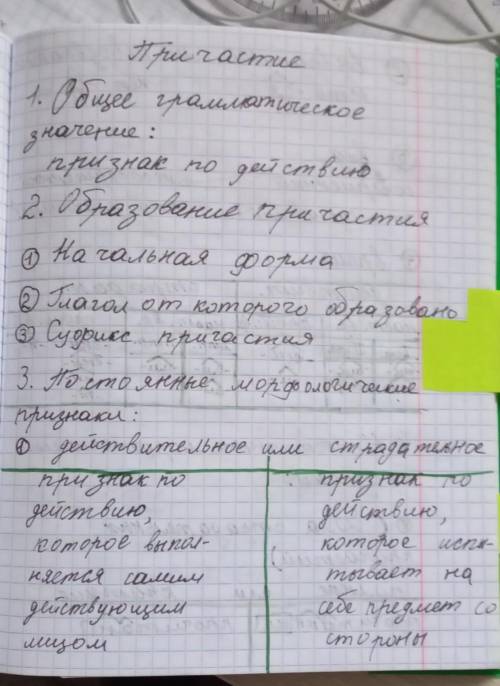 Причастие
1. Общее грамматическое
значение:
признак по действию
2. Образование причастия
① Начальная форма
② Глагол от которого образовано
③ Суффикс причастия
3. Постоянные морфологические
признаки:
① действительное или страдательное
признак по признак по
действию, действию,
которое выпол- которое испы-
няется самим тывает на
действующим себе предмет со
лицом стороны